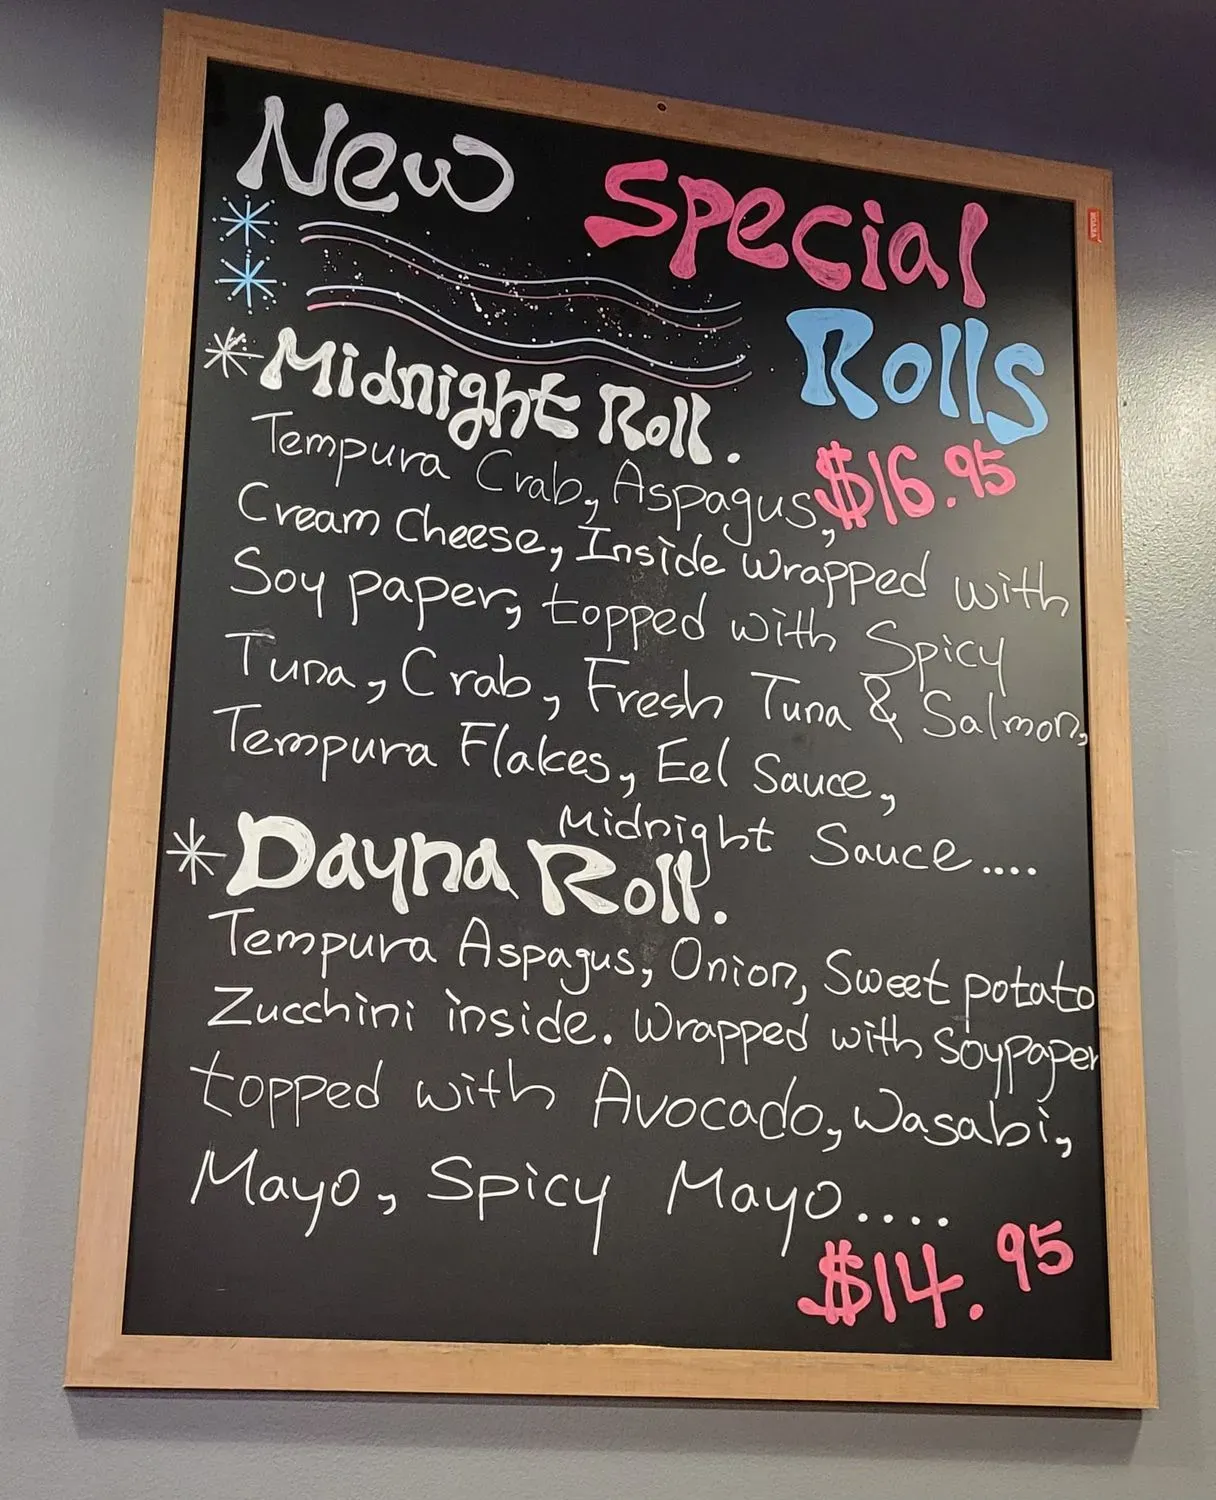 New Special
Rolls
* Midnight Roll.
$16.95
Tempura Crab, Aspagus,
Cream Cheese, Inside Wrapped with
Soy paper, topped with Spicy
Tuna, Crab, Fresh Tuna & Salmon,
Tempura Flakes, Eel Sauce,
Midnight Sauce....
* Dayna Roll.
Tempura Aspagus, Onion, Sweet potato
Zucchini inside. Wrapped with Soypaper
topped with Avocado, Wasabi,
Mayo, Spicy Mayo....
$14.95
VEVOR